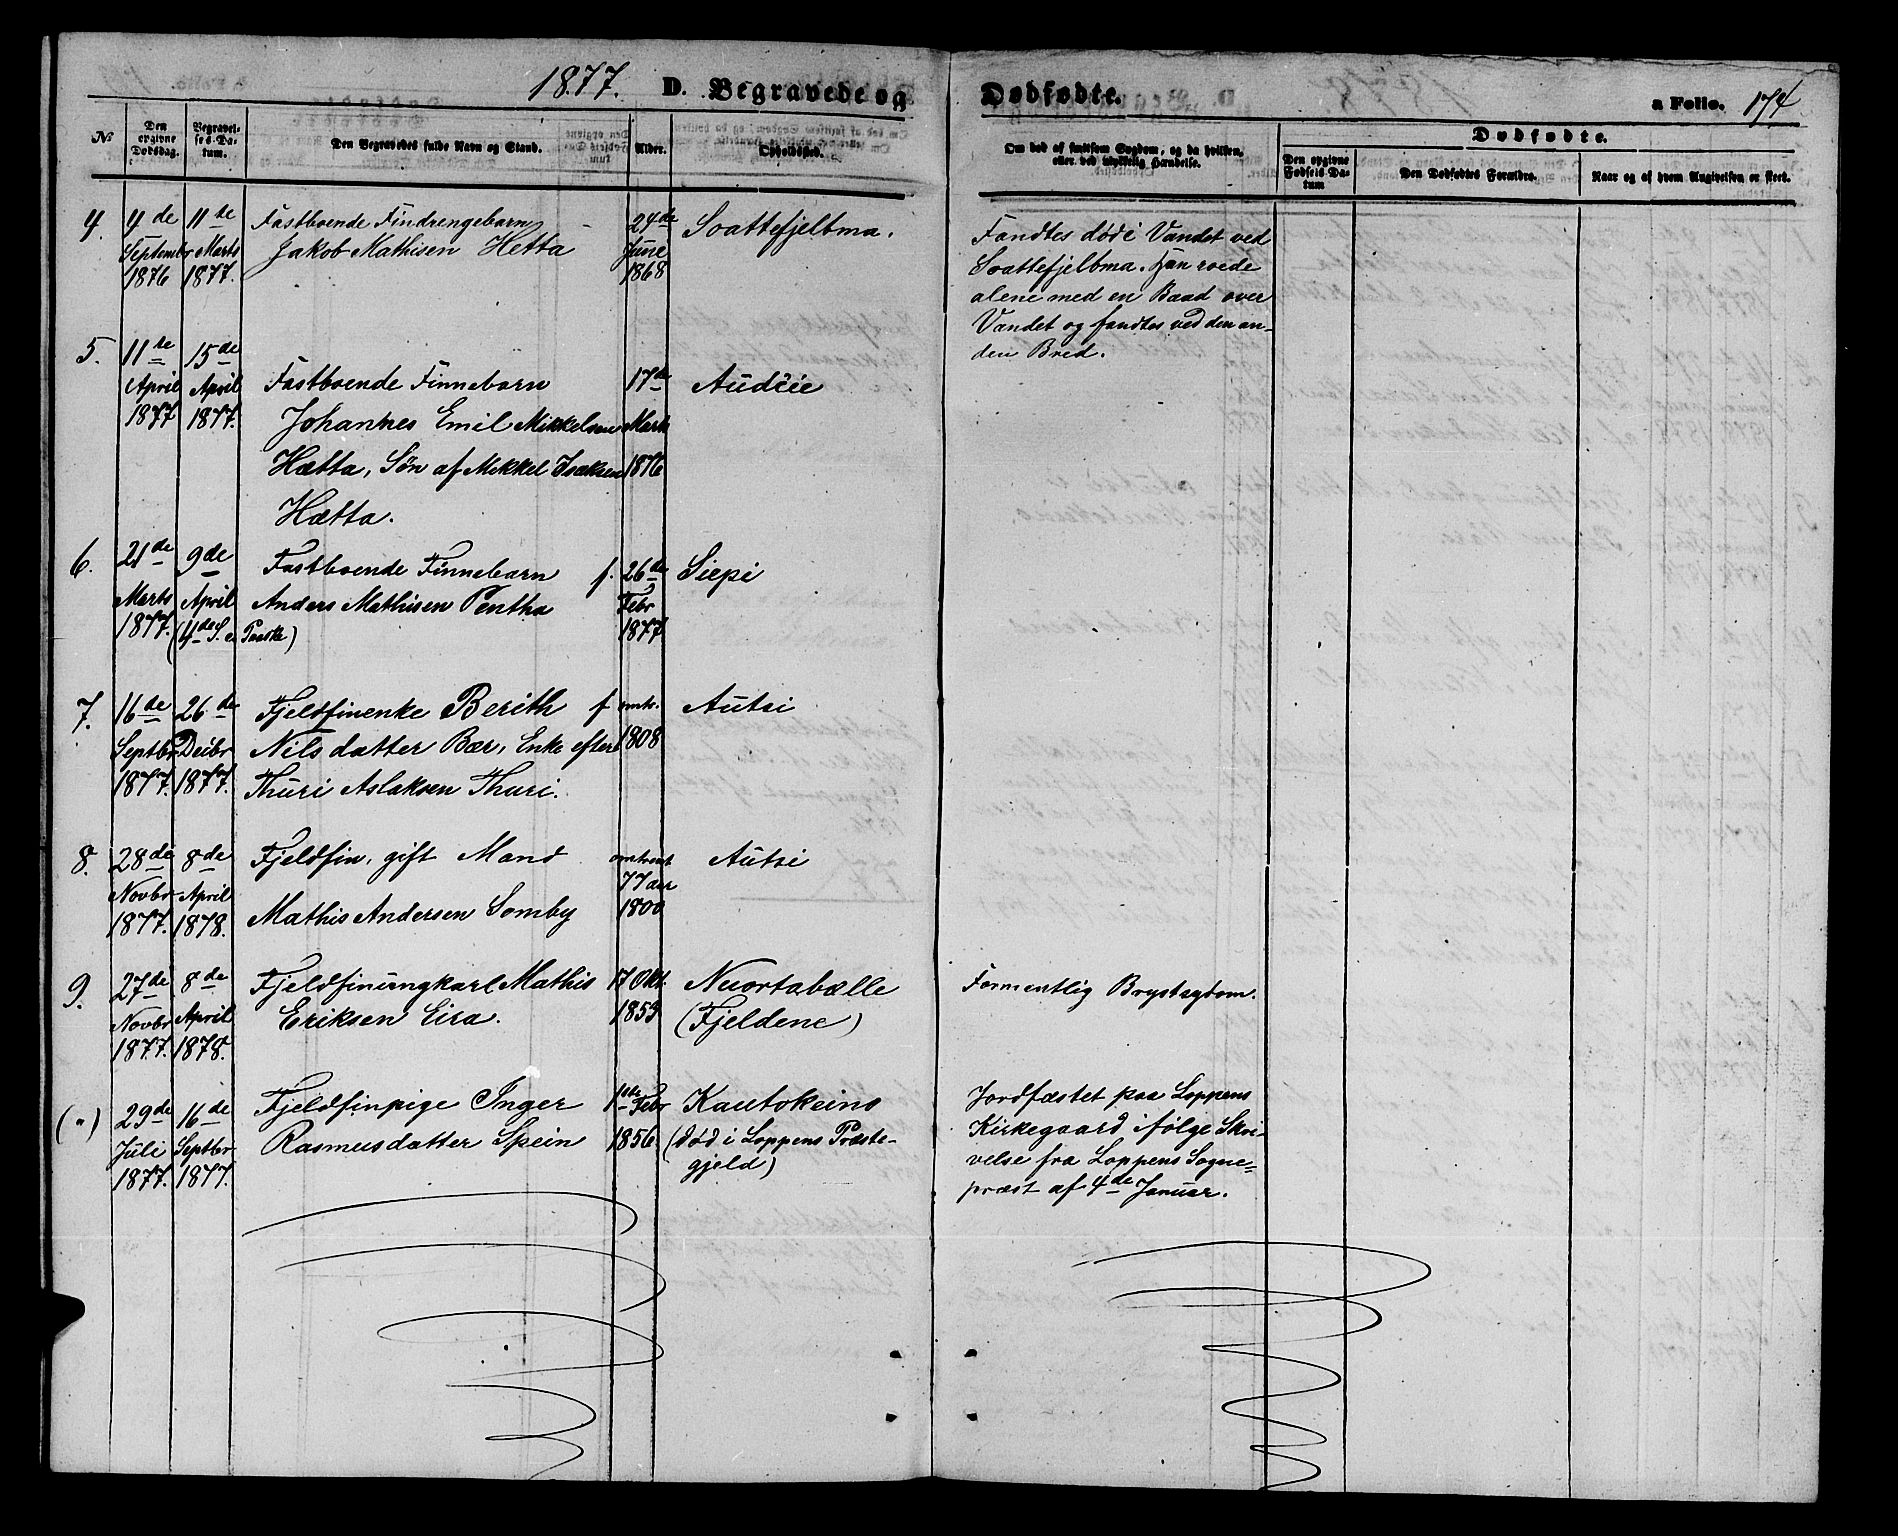 1877. D. Begravede og Dødfødte. a Folio. 174
No
Den opgivne Dødsdag.
Begravelses-Datum.
Den Begravedes fulde Navn og Stand.
Alder.
Opholdssted.
Om død af smitsom Sygdom, og da hvilken, eller ved ulykkelig Hændelse.
Dødfødte.
Den opgivne Fødsels-Datum
Den Dødfødtes Forældre.
Naar og af hvem Angivelsen er skeet.
4.
4de
September
1876
11te
Marts
1877.
Fastboende Findrengebarn
Jakob Mathisen Hetta
24de
June
1868
Soattefjelbma.
Fandtes død i Vandet ved
Soattefjelbma. Han roede
alene med en Baad over
Vandet og fandtes ved den an-
den Bred.
5.
11te
April
1877
15de
April
1877.
Fastboende Finnebarn
Johannes Emil Mikkelsen
Hætta, Søn af Mikkel Isaksen
Hætta.
17de
Marts
1876
6.
21de
Marts
1877.
9de
April
(4de S. e. Paaske)
Fastboende Finnebarn
Anders Mathisen Pentha
f. 26de
Febr
1877
Siepi
7.
16de
Septbr
1877.
26de
Decbr
1877.
Fjeldfinenke Berith
Nilsdatter Bær, Enke efter
Thuri Aslaksen Thuri.
f omtr.
1808
Autsi
8.
28de
Novbr
1877.
8de
April
1878.
Fjeldfin, gift Mand
Mathis Andersen Somby
omtrent
77 aar
1800
Autsi
9.
27de
Novbr
1877.
8de
April
1878.
Fjeldfinungkarl Mathis
Eriksen Eira.
17 Okt.
1853
Nuortabælle
(Fjeldene)
Formentlig Brystsygdom.
(")
29de
Juli
1877.
16de
Septbr
1877.
Fjeldfinpige Inger
Rasmusdatter Spein
1ste Febr
1856.
Kautokeino
(død i Loppens Præste-
gjeld)
Jordfæstet paa Loppens
Kirkegaard ifølge Skri-
velse fra Loppens Sogne=
præst af 4de Januar.